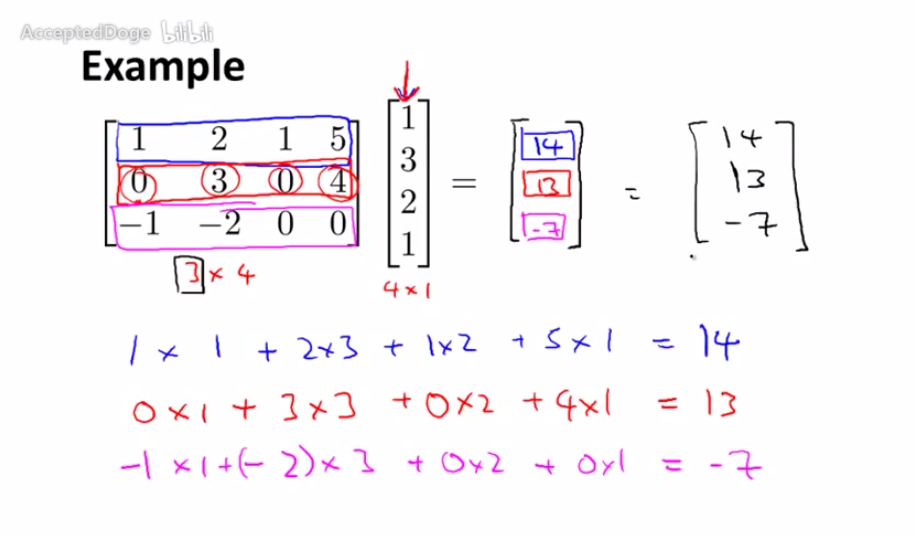 AcceptedDoge bilibili
Example
[1 2 1 5; 0 3 0 4; -1 -2 0 0] [1; 3; 2; 1] = [14; 13; -7] = [14; 13; -7]
3 × 4
4 × 1
1 × 1 + 2×3 + 1×2 + 5×1 = 14
0×1 + 3×3 + 0×2 + 4×1 = 13
-1 ×1+(-2)×3 + 0×2 + 0×1 = -7